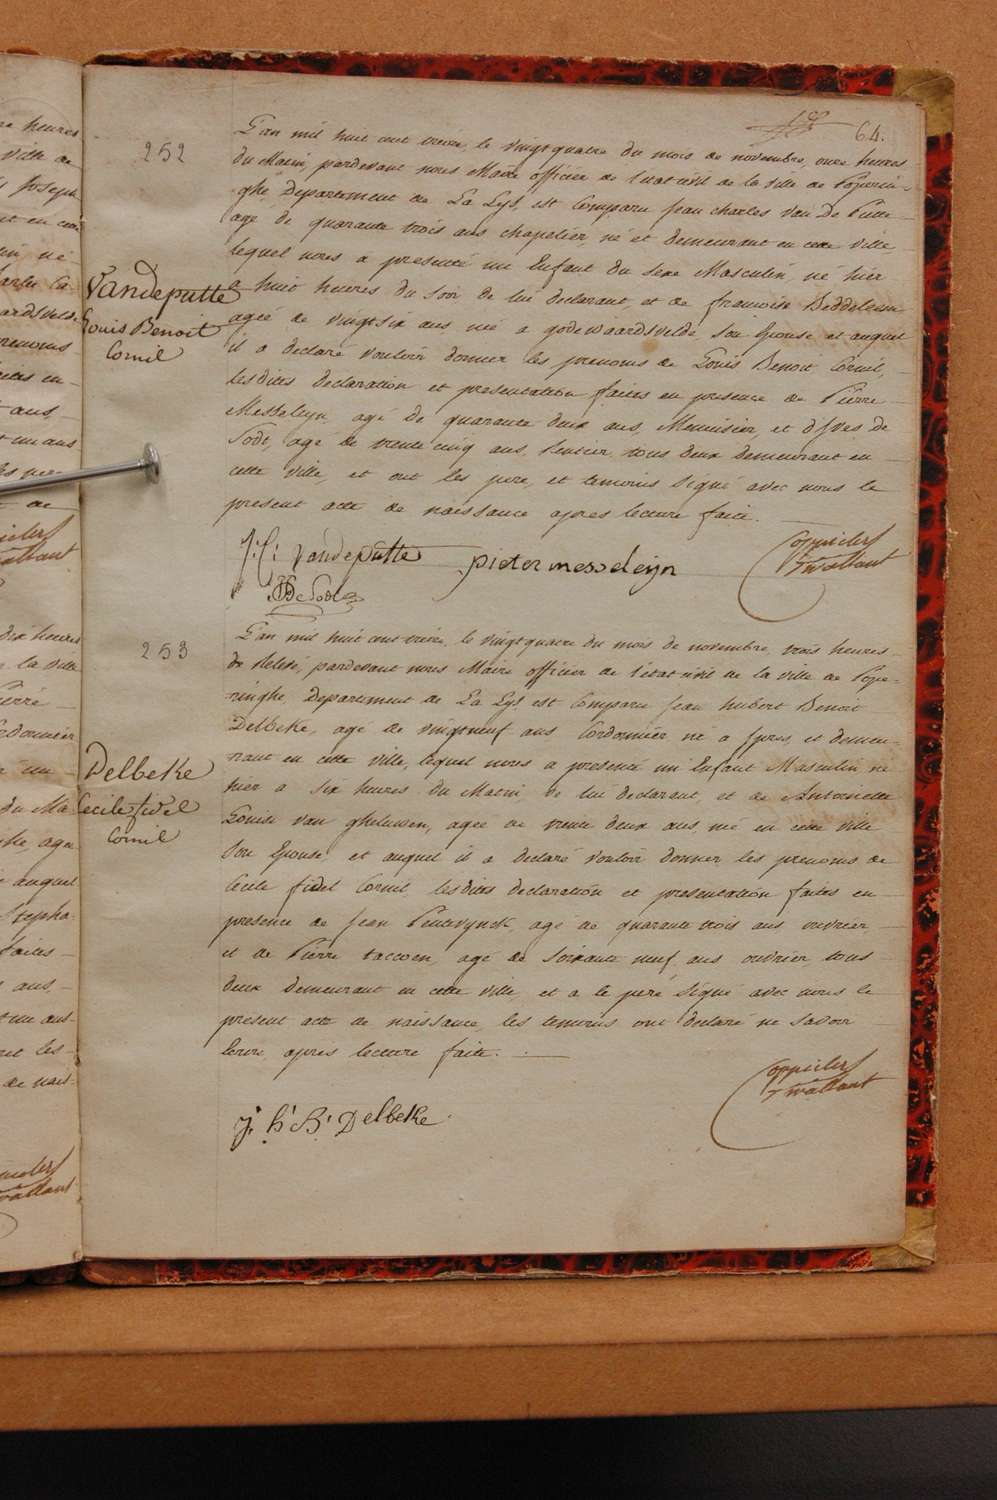 64.
252
L'an mil huit cent treize, le vingtquatre du mois de novembre, onze heures
du Matin, pardevant nous Maire officier de l'état civil de la ville de Poperin-
ghe, Departement de La Lys, est Comparu Jean Charles Van De Putte
agé de quarante trois ans chapelier, né et demeurant en cette ville,
lequel nous a presenté un Enfant du sexe Masculin, né hier
Vandeputte
Louis Benoit
Cornil
a huit heures du soir de lui declarant, et de francoise
agée de vingtsix ans née a godewaardsvelde, son Epouse et auquel
il a declaré vouloir donner les prenoms de Louis Benoit Cornil,
lesdites declaration et presentation faites en presence de Pierre
Messeleyn, agé de quarante deux ans, Menuisier, et d'Yves de
Sodt, agé de trente cinq ans, tous deux demeurant en
cette ville, et ont les pere, et temoins signé avec nous le
present acte de naissance apres lecture faite.
J: C: Vandeputte pieter messeleijn
De Sodt
253
L'an mil huit cent treize, le vingtquatre du mois de novembre, trois heures
de relevé, pardevant nous Maire officier de l'état civil de la ville de Pope-
ringhe, Departement de La Lys est Comparu Jean hubert Benoit
Delbeke, agé de vingtneuf ans Cordonnier né a Ypres, et demeu-
rant en cette ville, lequel nous a presenté un Enfant Masculin né
Delbeke
Cecile fidel
Cornil
hier a six heures du Matin, de lui declarant, et de Antoinette
Louise Van gheluwen, agée de trente deux ans, née en cette ville
son Epouse, et auquel il a declaré vouloir donner les prenoms de
Cecile fidel Cornil, lesdites declaration et presentation faites en
presence de Jean agé de quarante trois ans ouvrier,
et de Pierre taccoen, agé de soixante neuf ans ouvrier, tous
deux demeurant en cette ville, et a le pere signé avec nous le
present acte de naissance, les temoins ont declaré ne savoir
ecrire, apres lecture faite.
J: h: B: Delbeke